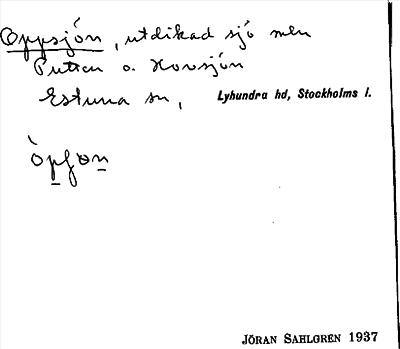 Oppsjön, utdikad sjö mellan
Putten o. Hovsjön
Estuna sn, Lyhundra hd, Stockholms l.
òpʃon
JÖRAN SAHLGREN 1937